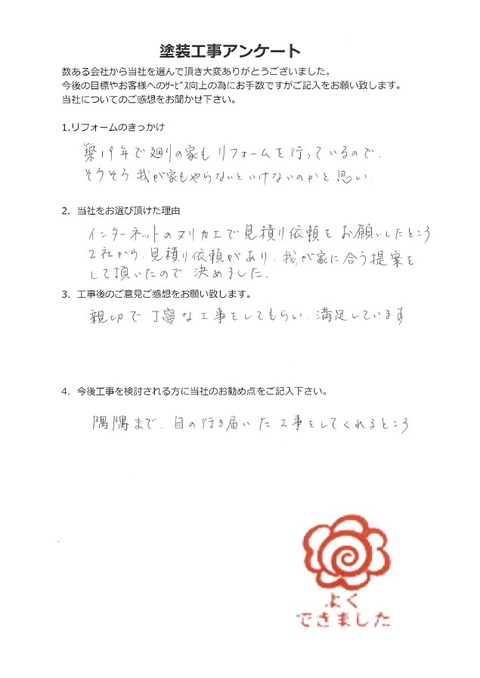 塗装工事アンケート
数ある会社から当社を選んで頂き大変ありがとうございました。
今後の目標やお客様へのｻｰﾋﾞｽ向上の為にお手数ですがご記入をお願い致します。
当社についてのご感想をお聞かせ下さい。
1.リフォームのきっかけ
築19年で廻りの家もリフォームを行っているので、
そろそろ我が家もやらないといけないのかと思い、
2．当社をお選び頂けた理由
インターネットのヌリカエで見積り依頼をお願いしたところ
2社から、見積り依頼があり、我が家に合う提案を
して頂いたので決めました。
3．工事後のご意見ご感想をお願い致します。
親切で丁寧な工事をしてもらい、満足しています
4．今後工事を検討される方に当社のお勧め点をご記入下さい。
隅隅まで、目の行き届いた工事をしてくれるところ
よく
できました